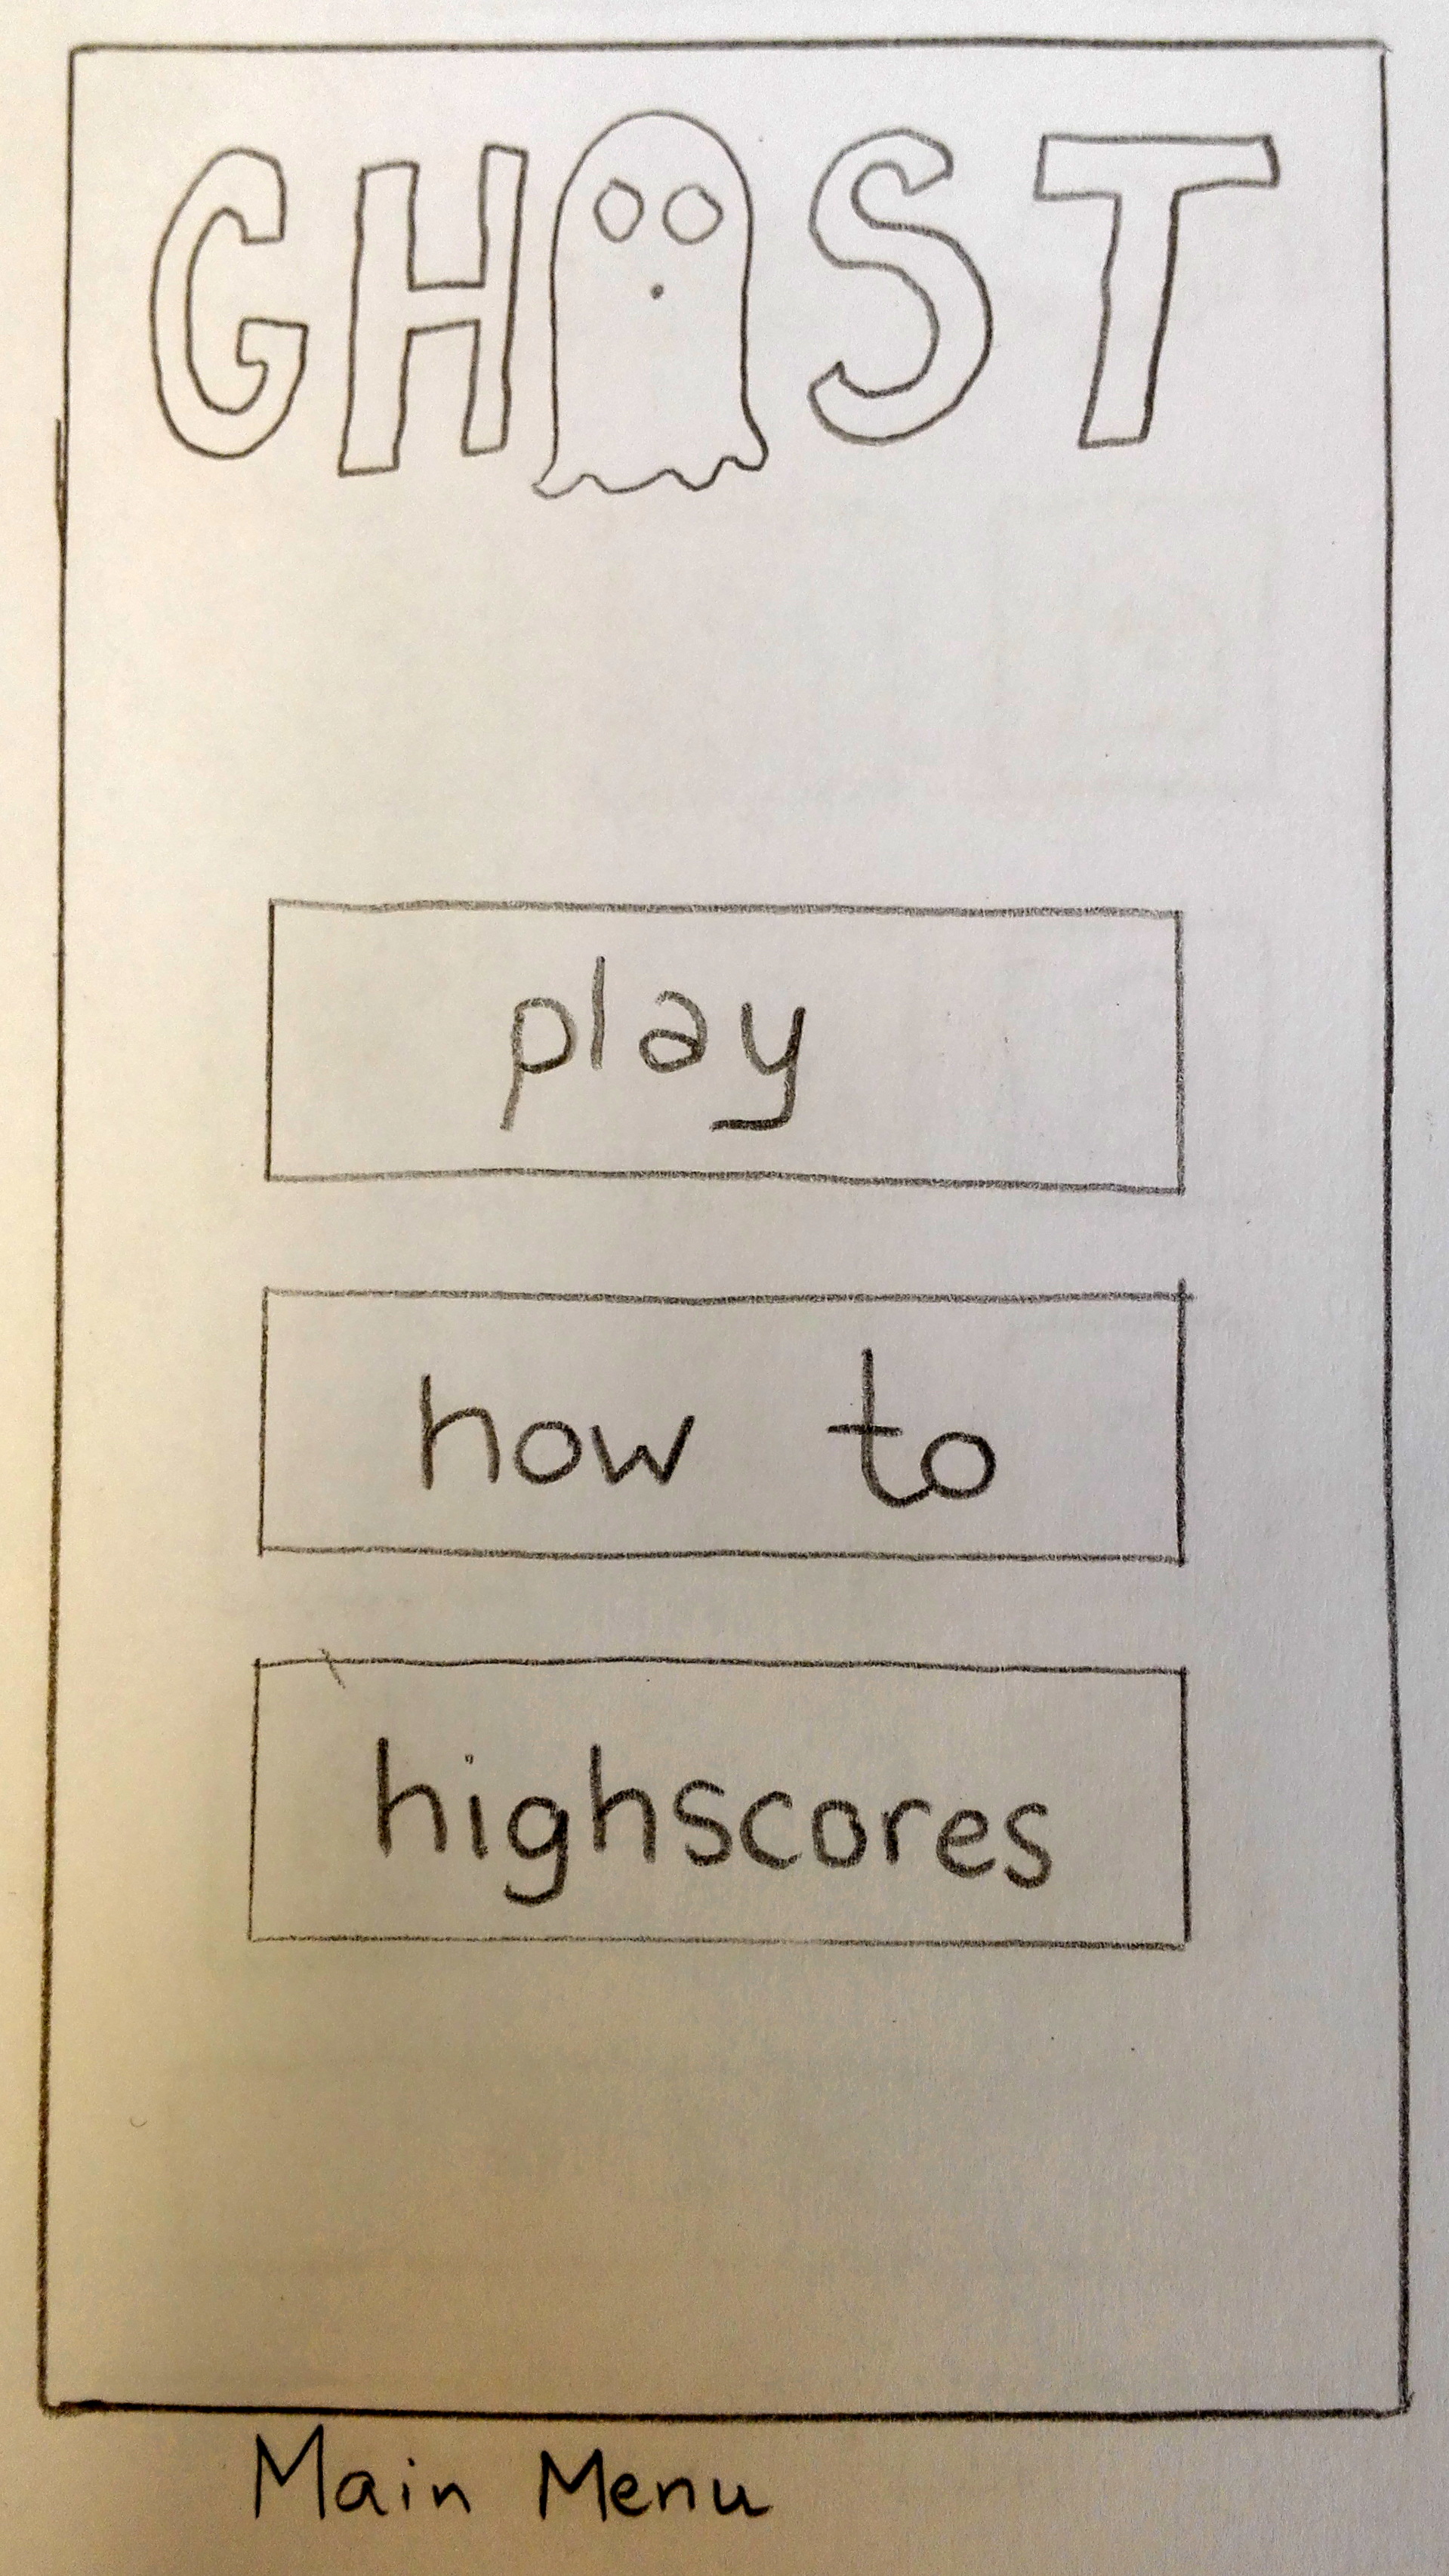 GHOST
play
how to
highscores
Main Menu